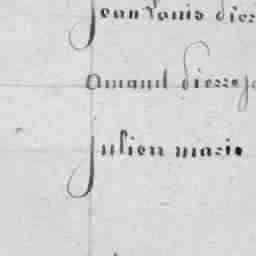 Jean Louis Pier
Amand Pierre J
Julien marie